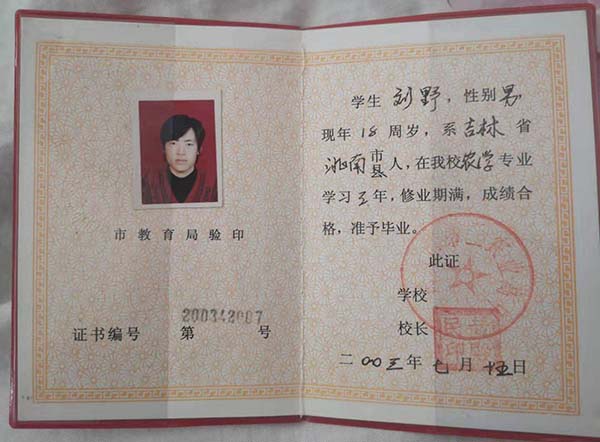 市教育局验印
200342007
证书编号 第 号
学生 刘野，性别 男，
现年 18 周岁，系 吉林 省
洮南 市县 人，在我校 农学 专业
学习 三 年，修业期满，成绩合
格，准予毕业。
此证
学校
校长
二〇〇三年 七 月 十五 日